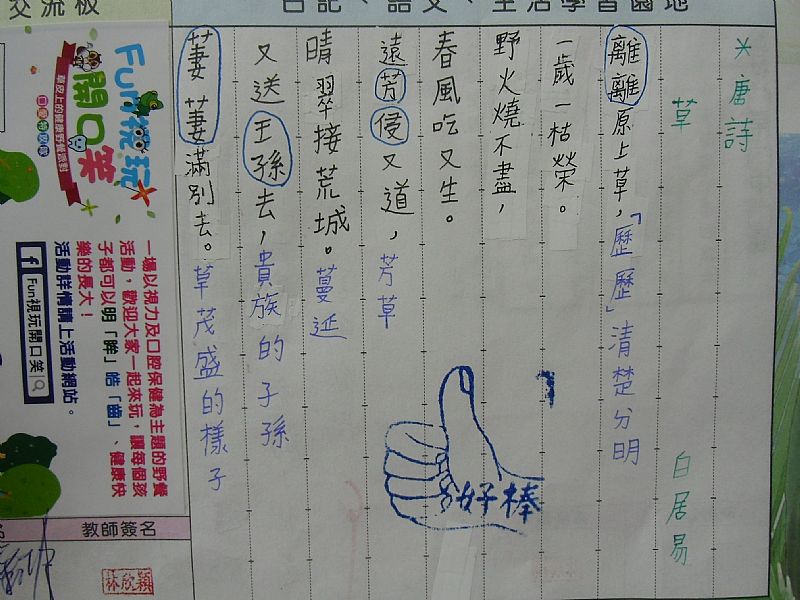 交流板
日記、語文、生活學習園地
＊唐詩
草 白居易
離離原上草，「歷歷」清楚分明
一歲一枯榮。
野火燒不盡，
春風吃又生。
遠芳侵又道，芳草
晴翠接荒城。蔓延
又送王孫去，貴族的子孫
萋萋滿別去。草茂盛的樣子
好棒
Fun視玩
開口笑
草皮上的健康野餐派對
一場以視力及口腔保健為主題的野餐
活動，歡迎大家一起來玩，讓每個孩
子都可以明「眸」皓「齒」、健康快
樂的長大！
活動詳情請上活動網站。
f Fun視玩開口笑
教師簽名